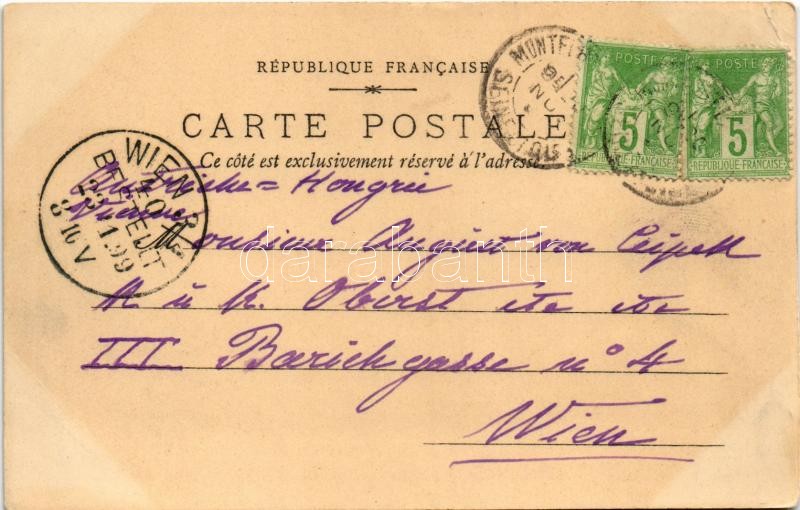 RÉPUBLIQUE FRANÇAISE
CARTE POSTALE
Ce côté est exclusivement réservé à l'adresse
POSTE POSTE
5 5
RÉPUBLIQUE FRANÇAISE RÉPUBLIQUE FRANÇAISE
WIEN
BESTELLT
8-10 V
Autriche=Hongrie
Vienne
Monsieur August von
K u K. Oberst etc etc
III Barichgasse n° 4
Wien
darabanth